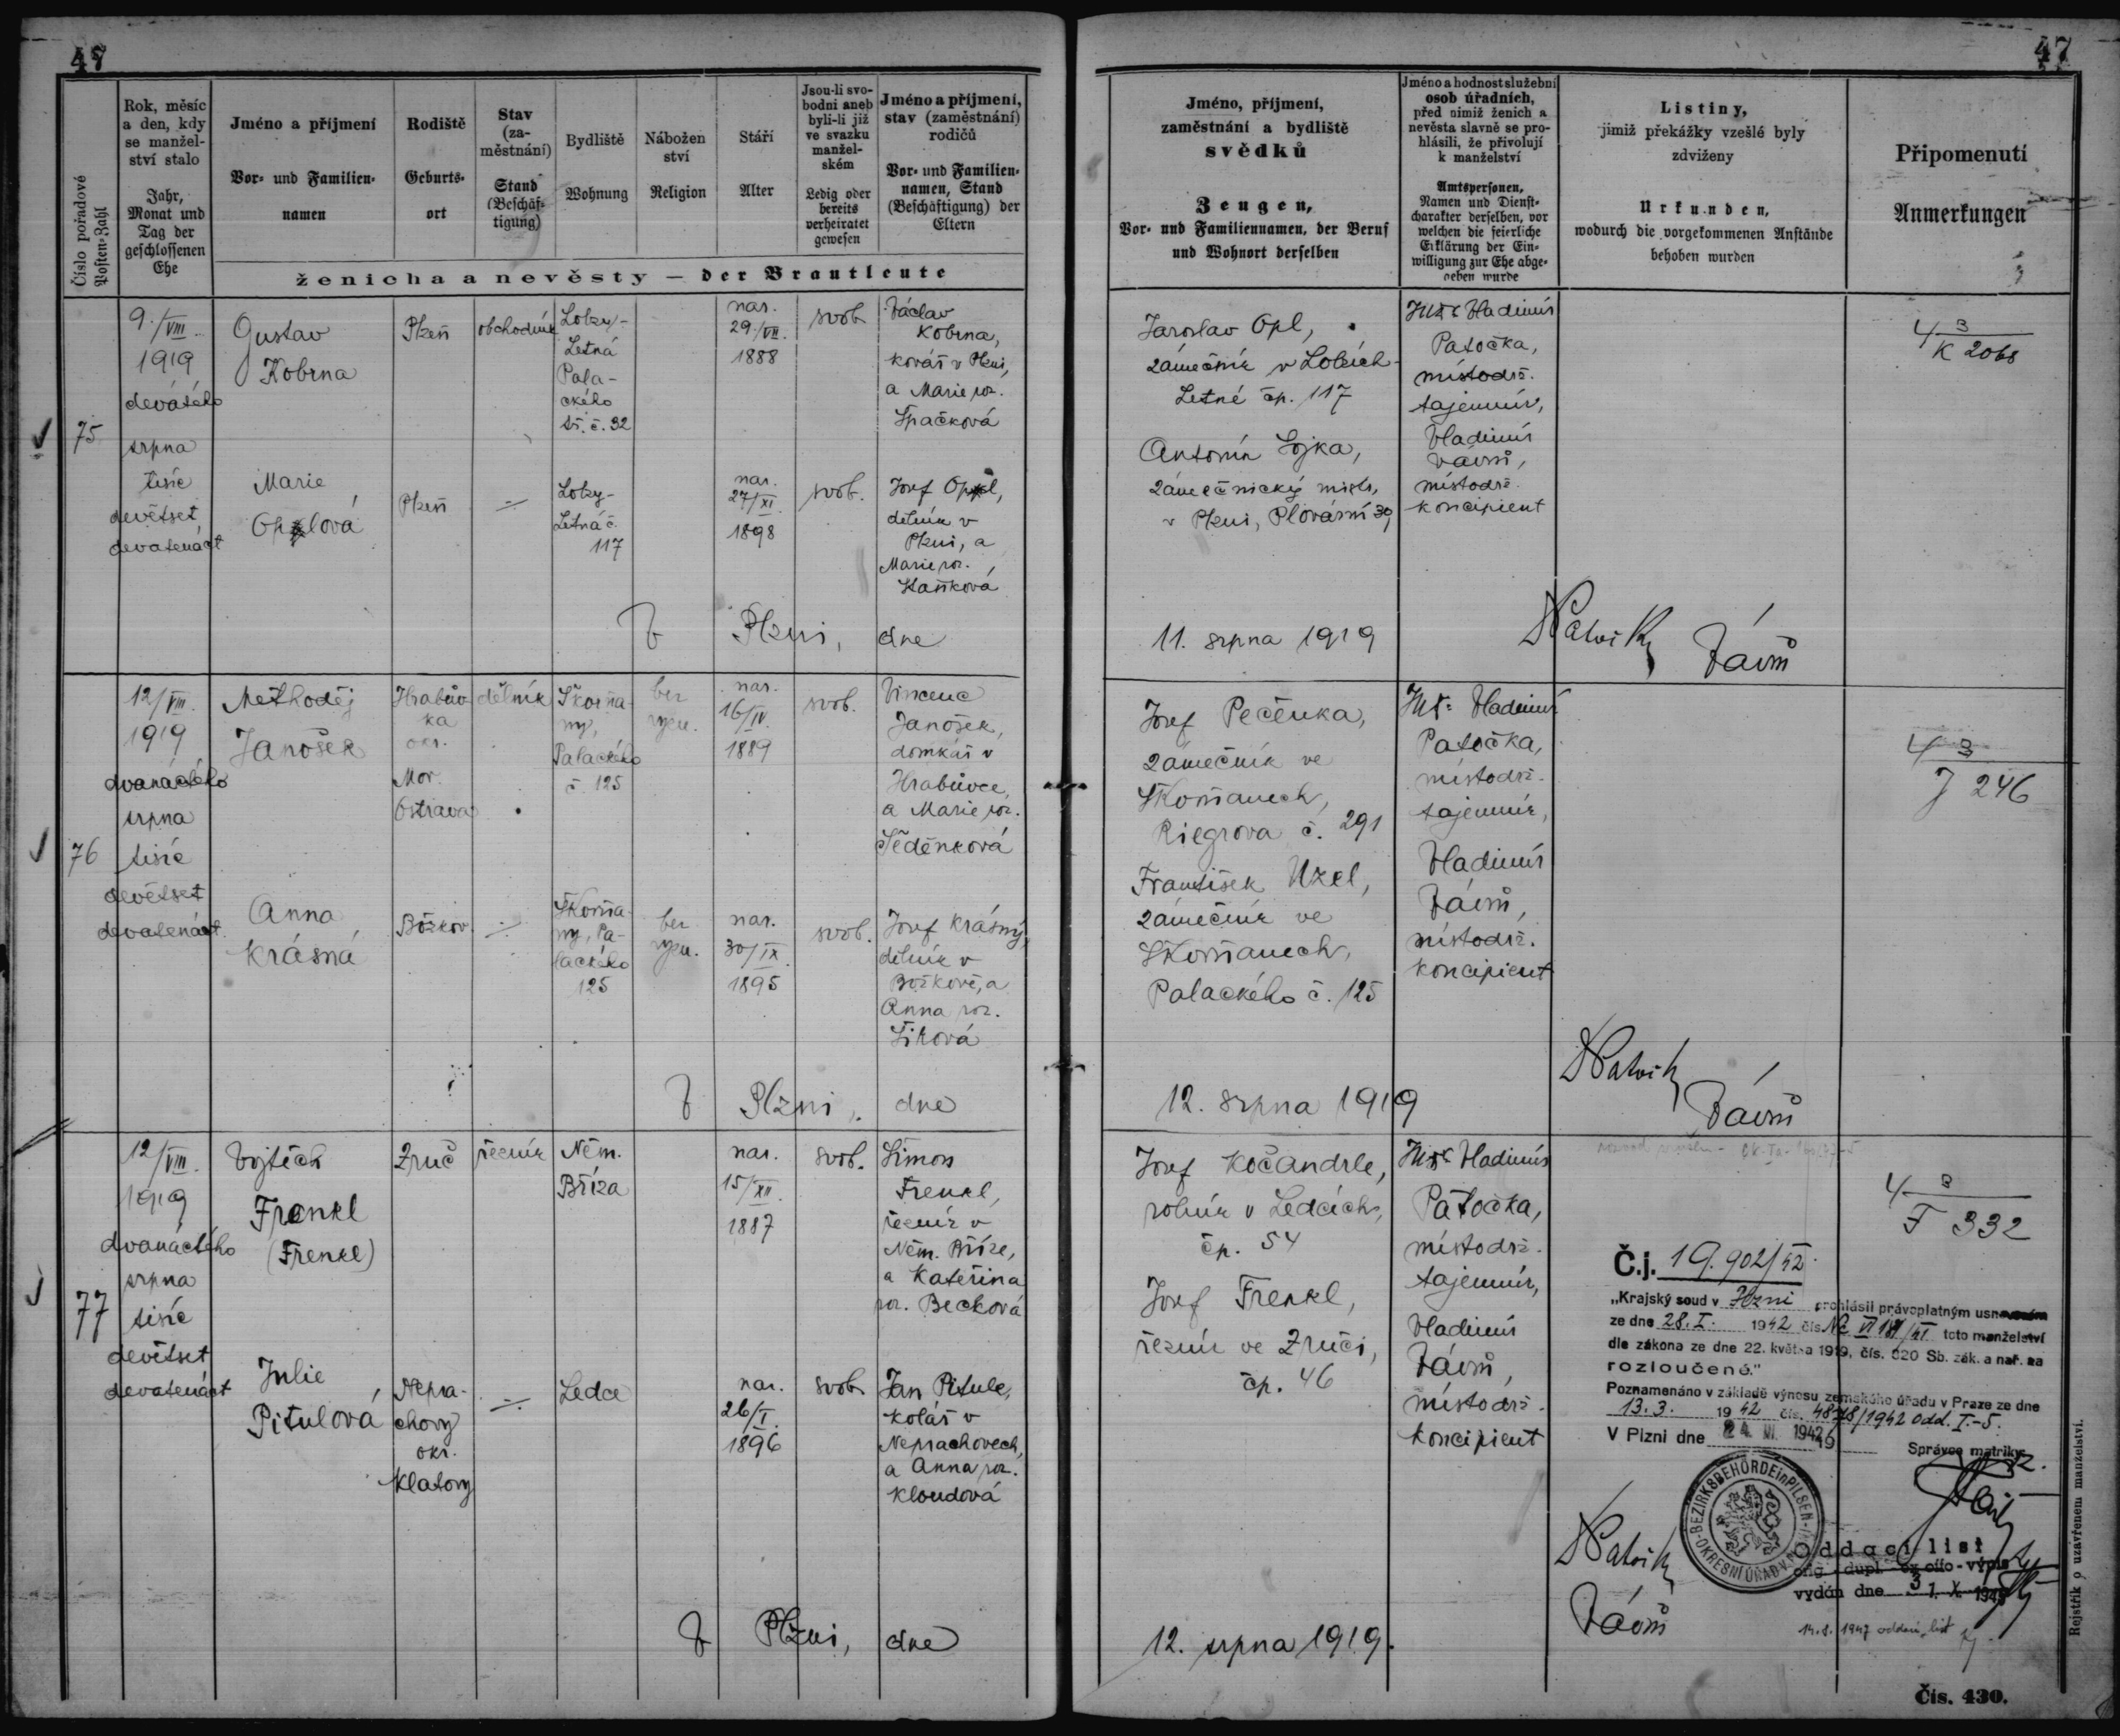 47
47
Číslo pořadové
Posten-Zahl
Rok, měsíc
a den, kdy
se manžel-
ství stalo
Jahr,
Monat und
Tag der
geschlossenen
Ehe
Jméno a příjmení
Vor- und Familien-
namen
Rodiště
Geburts-
ort
Stav
(za-
městnání)
Stand
(Beschäf-
tigung)
Bydliště
Wohnung
Nábožen
ství
Religion
Stáří
Alter
Jsou-li svo-
bodni aneb
byli-li již
ve svazku
manžel-
ském
Ledig oder
bereits
verheiratet
gewesen
Jméno a příjmení,
stav (zaměstnání)
rodičů
Vor- und Familien-
namen, Stand
(Beschäftigung) der
Eltern
ženicha a nevěsty — der Brautleute
Jméno, příjmení,
zaměstnání a bydliště
svědků
Zeugen,
Vor- und Familiennamen, der Beruf
und Wohnort derselben
Jméno a hodnost služební
osob úřadních,
před nimiž ženich a
nevěsta slavně se pro-
hlásili, že přivolují
k manželství
Amtspersonen,
Namen und Dienst-
charakter derselben, vor
welchen die feierliche
Erklärung der Ein-
willigung zur Ehe abge-
geben wurde
Listiny,
jimiž překážky vzešlé byly
zdviženy
Urkunden,
wodurch die vorgekommenen Anstände
behoben wurden
Připomenutí
Anmerkungen
75
9./VIII.
1919
devátého
srpna
tisíc
devětset
devatenáct
Gustav
Kobrna
Plzeň
obchodník
Lobzy-
Letná
Pala-
ckého
tř. č. 32
nar.
29./VII.
1888
svob.
Václav
Kobrna,
kovář v Plzni,
a Marie roz.
Špačková
Marie
Oplová
Plzeň
Lobzy-
Letná č.
117
nar.
27/XI.
1898
svob.
Josef Opl,
dělník v
Plzni, a
Marie roz.
Haňková
Jaroslav Opl,
zámečník v Lobzích-
Letné čp. 117
Antonín Sojka,
zámečnický mistr,
v Plzni, Plovární 39,
JUDr Vladimír
Patočka,
místodrž.
tajemník,
Vladimír
Vávrů,
místodrž.
koncipient
4 3
K 2068
V Plzni, dne
11. srpna 1919
Patočka
Vávrů
76
12/VIII.
1919
dvanáctého
srpna
tisíc
devětset
devatenáct
Methoděj
Janošek
Hrabův-
ka
okr.
Mor.
Ostrava
dělník
Škorňa-
ny,
Palackého
č. 125
bez
vyzn.
nar.
16/IV.
1889
svob.
Vincenc
Janošek,
domkář v
Hrabůvce,
a Marie roz.
Šeděnková
Anna
Krásná
Božkov
Skorňa-
ny, Pa-
lackého
125
bez
vyzn.
nar.
30/IX.
1895
svob.
Josef Krásný,
dělník v
Božkově, a
Anna roz.
Šiková
Josef Pečenka,
zámečník ve
Skorňanech,
Riegrova č. 291
František Uzel,
zámečník ve
Skorňanech,
Palackého č. 125
JUDr Vladimír
Patočka,
místodrž.
tajemník,
Vladimír
Vávrů,
místodrž.
koncipient
4 3
J 246
V Plzni, dne
12. srpna 1919
Patočka
Vávrů
77
12/VIII.
1919
dvanáctého
srpna
tisíc
devětset
devatenáct
Vojtěch
Frenkl
(Frenkl)
Zruč
řezník
Něm.
Bříza
nar.
15/XII.
1887
svob.
Šimon
Frenkl,
řezník v
Něm. Bříze,
a Kateřina
roz. Becková
Julie
Pitulová
Nepra-
chovy
okr.
Klatovy
Ledce
nar.
26/I.
1896
svob.
Jan Pitule,
kolář v
Neprachovech,
a Anna roz.
Kloudová
Josef Kočandrle,
rolník v Ledcích,
čp. 54
Josef Frenkl,
řezník ve Zruči,
čp. 46
JUDr Vladimír
Patočka,
místodrž.
tajemník,
Vladimír
Vávrů,
místodrž.
koncipient
4 3
F 332
Č.j. 19.902/42.
„Krajský soud v Plzni prohlásil právoplatným usnesením
ze dne 28. I. 1942 čís. Nc VI 181/41 toto manželství
dle zákona ze dne 22. května 1919, čís. 320 Sb. zák. a nař. za
rozloučené."
Poznamenáno v základě výnosu zemského úřadu v Praze ze dne
13. 3. 1942 čís. 48718/1942 odd. I.-5.
V Plzni dne 24. VI. 1942
Správce matriky:
BEZIRKSBEHÖRDE in PILSEN
OKRESNÍ ÚŘAD V
Oddací list
orig.-dupl.-ex offo-výpis
vydán dne 31. X. 1945
14.8. 1947 oddací list
V Plzni, dne
12. srpna 1919.
Patočka
Vávrů
Rejstřík o uzavřeném manželství.
Čís. 430.